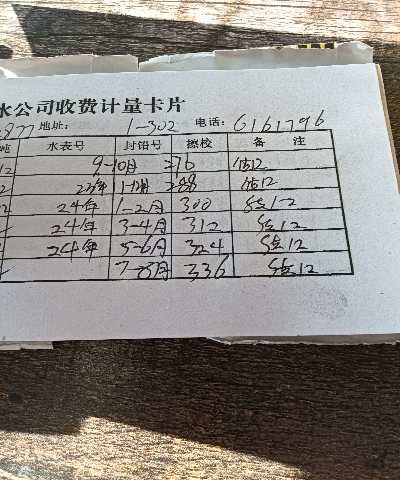 水公司收费计量卡片
877 地址: 1-302 电话: 6161796
吨 水表号 封铅号 擦校 备注
12 9-10月 276 估12
2 23年 11-12月 288 估12
2 24年 1-2月 300 估12
24年 3-4月 312 估12
24年 5-6月 324 估12
7-8月 336 估12